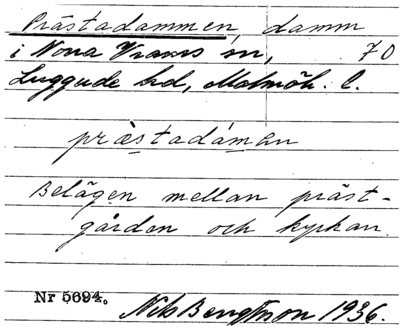 Prästadammen, damm
i Norra Vrams sn, 70
Luggude hd, Malmöh. l.
præstadámən
Belägen mellan präst-
gården och kyrkan.
Nr 5694.
Nils Bengtsson 1936.